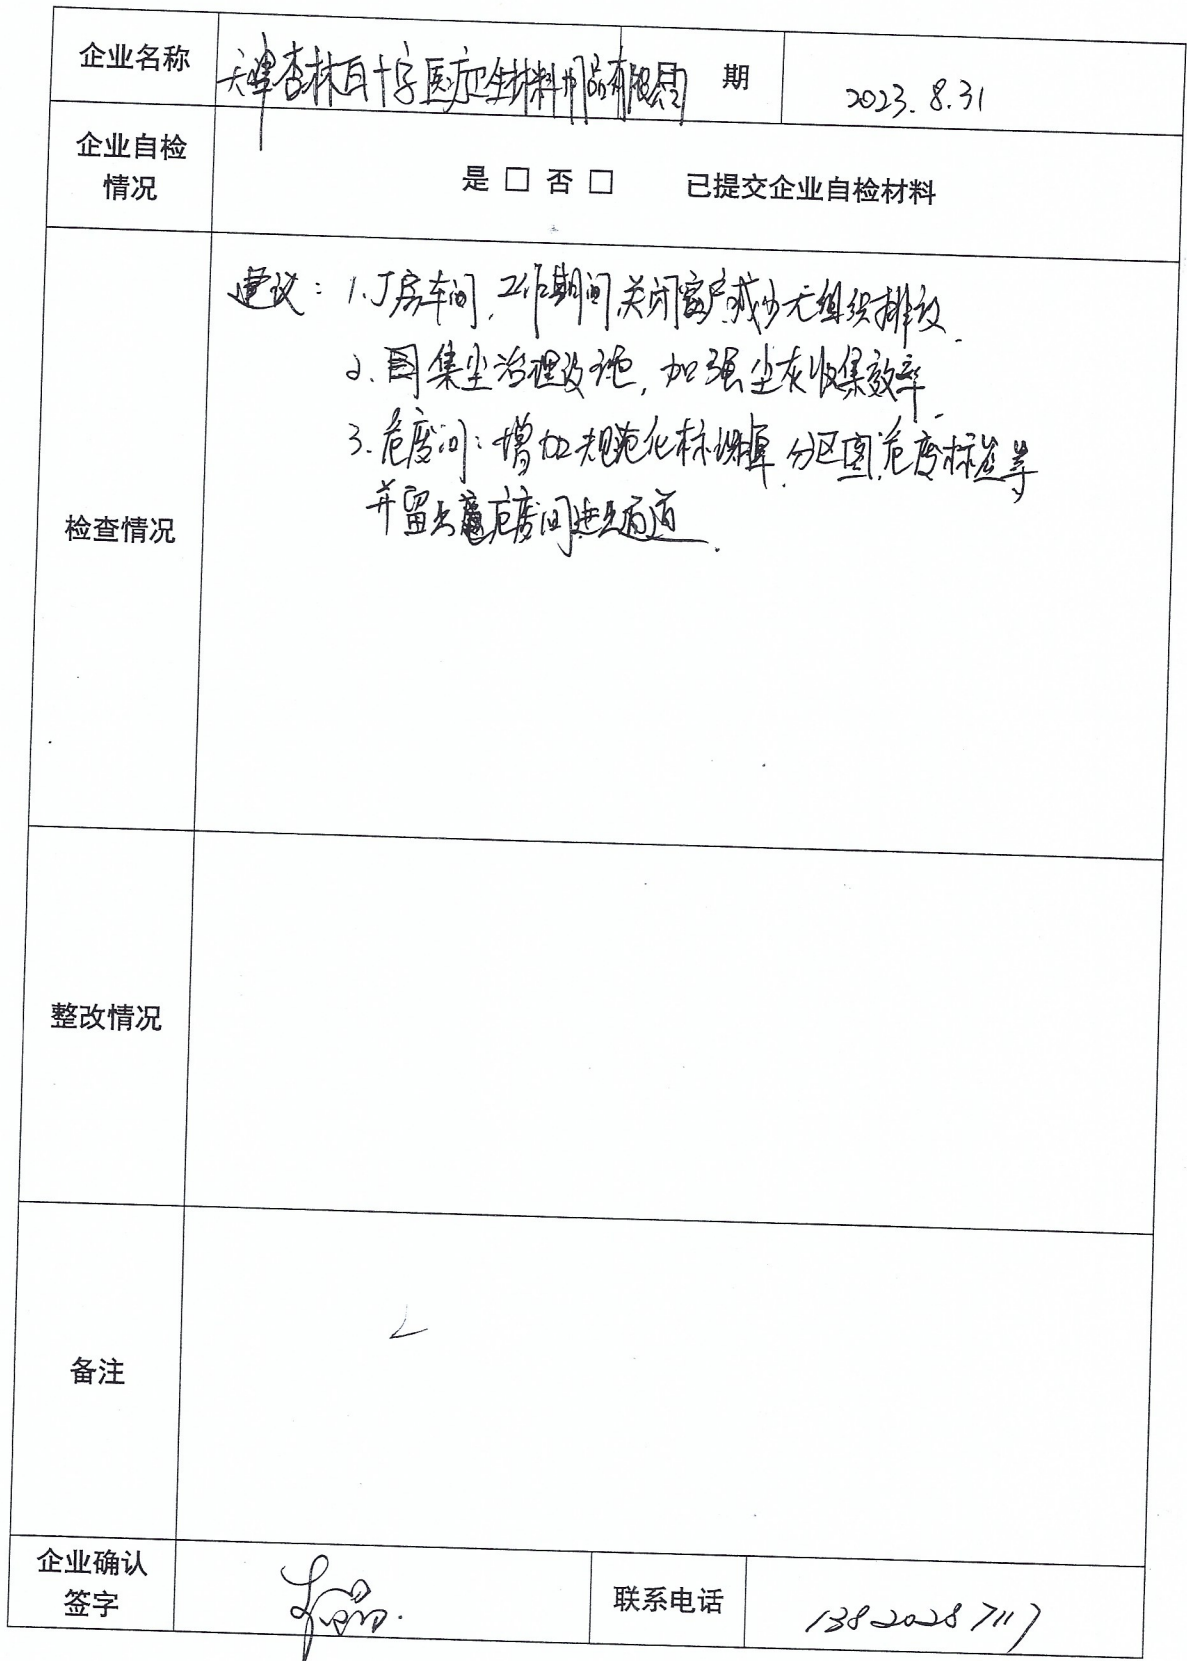 企业名称 天津杏林白十字医疗卫生材料用品有限公司 期 2023.8.31
企业自检
情况
是 □ 否 □ 已提交企业自检材料
建议：1.厂房车间，工作期间关闭窗户减少无组织排放.
2. 集尘治理设施，加强尘灰收集效率.
3.危废间：增加规范化标识牌，分区图，危废标签等
并留出危废间进出通道.
检查情况
整改情况
备注
企业确认
签字
联系电话 13820287117